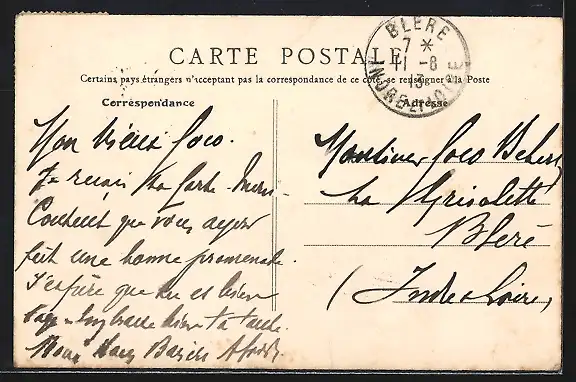 CARTE POSTALE
Certains pays étrangers n'acceptant pas la correspondance de ce côté, se renseigner à la Poste
Correspondance
Adresse
BLERE
7 *
11 - 8
13
INDRE-ET-LOIRE
Mon Vieux Coco.
Je reçois ta Carte
Content que vous ayez
fait une bonne promenade.
J'espère que tu es bien
sage Embrasse bien ta tante.
Monsieur Coco
La Grisolette
Bleré
(Indre & Loire)